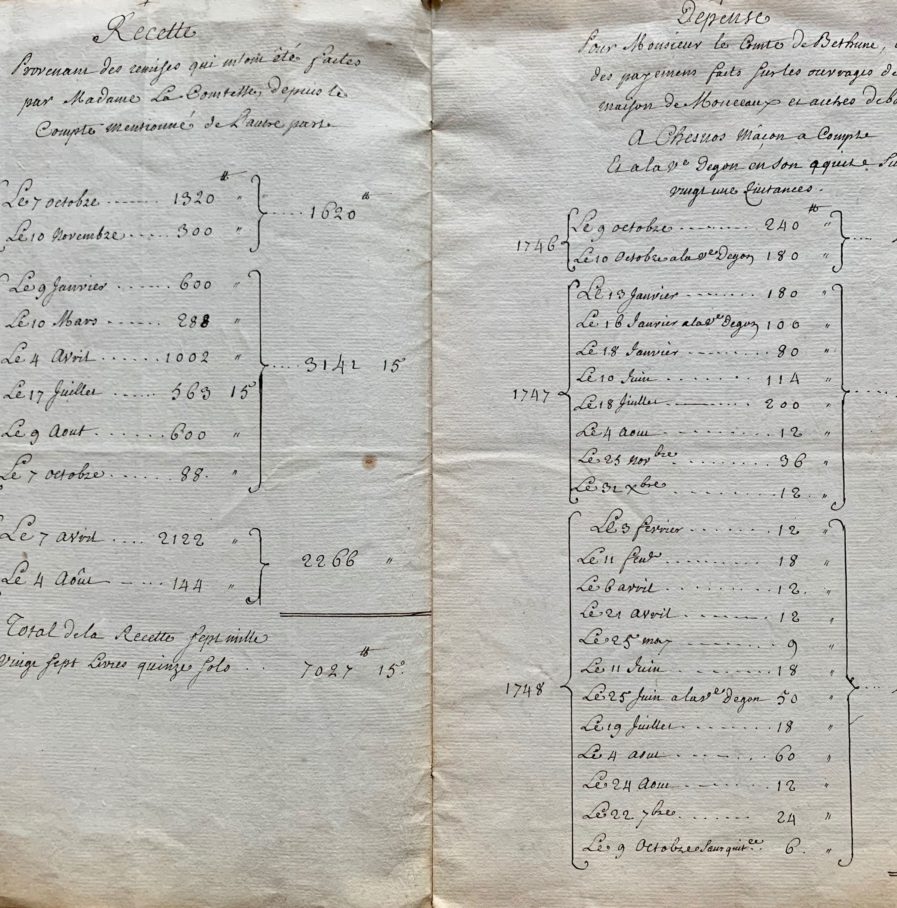 Recette
Provenant des remises qui m'ont été faites
par Madame La Comtesse, depuis le
Compte mentionné de L'autre part
Le 7 octobre ....... 1320 ᵗᵗ "
Le 10 Novembre ..... 300 "
..... 1620 ᵗᵗ
Le 9 Janvier ...... 600 "
Le 10 Mars ...... 288 "
Le 4 Avril ..... 1002 "
Le 17 Juillet ...... 563 15ˢ
Le 9 Aout ....... 600 "
Le 7 octobre ..... 88 "
.... 3141 15ˢ
Le 7 avril .... 2122 "
Le 4 Août ..... 144 "
2266 "
Total de la Recette sept mille
vingt sept Livres quinze sols ... 7027 ᵗᵗ 15ˢ
Dépense
Pour Monsieur le Comte de Bethune,
des payemens faits sur les ouvrages de
maison de Monceaux et autres
A Chesnos Maçon a Compte
Et a la vᵉ Degon en son aquit
vingt une Quitances.
1746
Le 9 octobre ........ 240 ᵗᵗ "
Le 10 Octobre a la vᵉ Degon 180 "
1747
Le 13 Janvier ....... 180 "
Le 16 Janvier a la vᵉ Degon 100 "
Le 18 Janvier ....... 80 "
Le 10 Juin ........ 114 "
Le 18 Juillet ....... 200 "
Le 4 Aout ........ 12 "
Le 25 Novᵇʳᵉ ....... 36 "
Le 31 Xᵇʳᵉ ........ 12 "
1748
Le 3 fevrier ....... 12 "
Le 11 fevʳ ........ 18 "
Le 6 avril ........ 12 "
Le 21 avril ....... 12 "
Le 25 may ....... 9 "
Le 11 Juin ....... 18 "
Le 25 Juin a la vᵉ Degon 50 "
Le 19 Juillet ....... 18 "
Le 4 aout ....... 60 "
Le 24 Aout ....... 12 "
Le 22 7ᵇʳᵉ ....... 24 "
Le 9 Octobre sans quitᶜᵉ .. 6 "